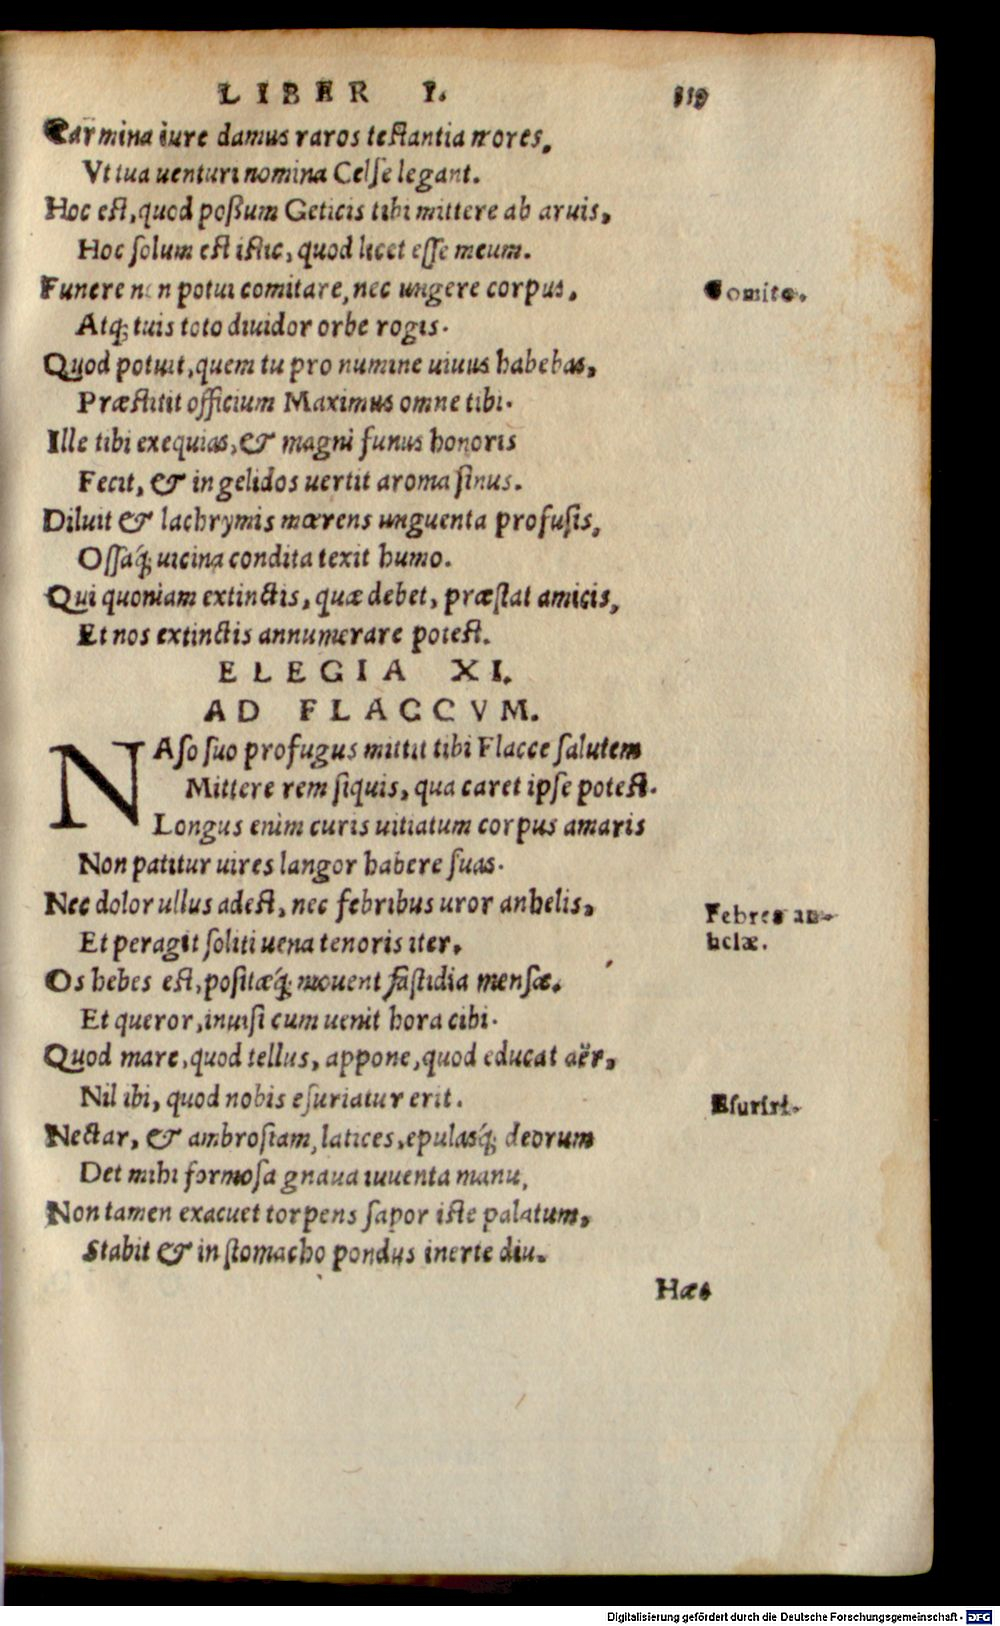 LIBER I. 119
Carmina iure damus raros testantia mores,
Vt tua uenturi nomina Celse legant.
Hoc est, quod poßum Geticis tibi mittere ab aruis,
Hoc solum est istic, quod licet esse meum.
Funere non potui comitare, nec ungere corpus,
Comito.
Atq; tuis toto diuidor orbe rogis.
Quod potuit, quem tu pro numine uiuus habebas,
Præstitit officium Maximus omne tibi.
Ille tibi exequias, & magni funus honoris
Fecit, & in gelidos uertit aroma sinus.
Diluit & lachrymis mœrens unguenta profusis,
Ossaq́; uicina condita texit humo.
Qui quoniam extinctis, quæ debet, præstat amicis,
Et nos extinctis annumerare potest.
ELEGIA XI.
AD FLACCVM.
NAso suo profugus mittit tibi Flacce salutem
Mittere rem siquis, qua caret ipse potest.
Longus enim curis uitiatum corpus amaris
Non patitur uires langor habere suas.
Nec dolor ullus adest, nec febribus uror anhelis,
Febres an-
helæ.
Et peragit soliti uena tenoris iter.
Os hebes est, positæq́; mouent fastidia mensæ.
Et queror, inuisi cum uenit hora cibi.
Quod mare, quod tellus, appone, quod educat aër,
Nil ibi, quod nobis esuriatur erit.
Esuriri.
Nectar, & ambrosiam, latices, epulasq́; deorum
Det mihi formosa gnaua iuuenta manu,
Non tamen exacuet torpens sapor iste palatum,
Stabit & in stomacho pondus inerte diu.
Hæc
Digitalisierung gefördert durch die Deutsche Forschungsgemeinschaft - DFG